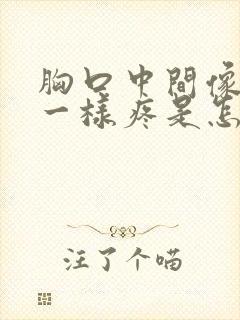 胸口中間像
一樣疼是怎
注了个喵